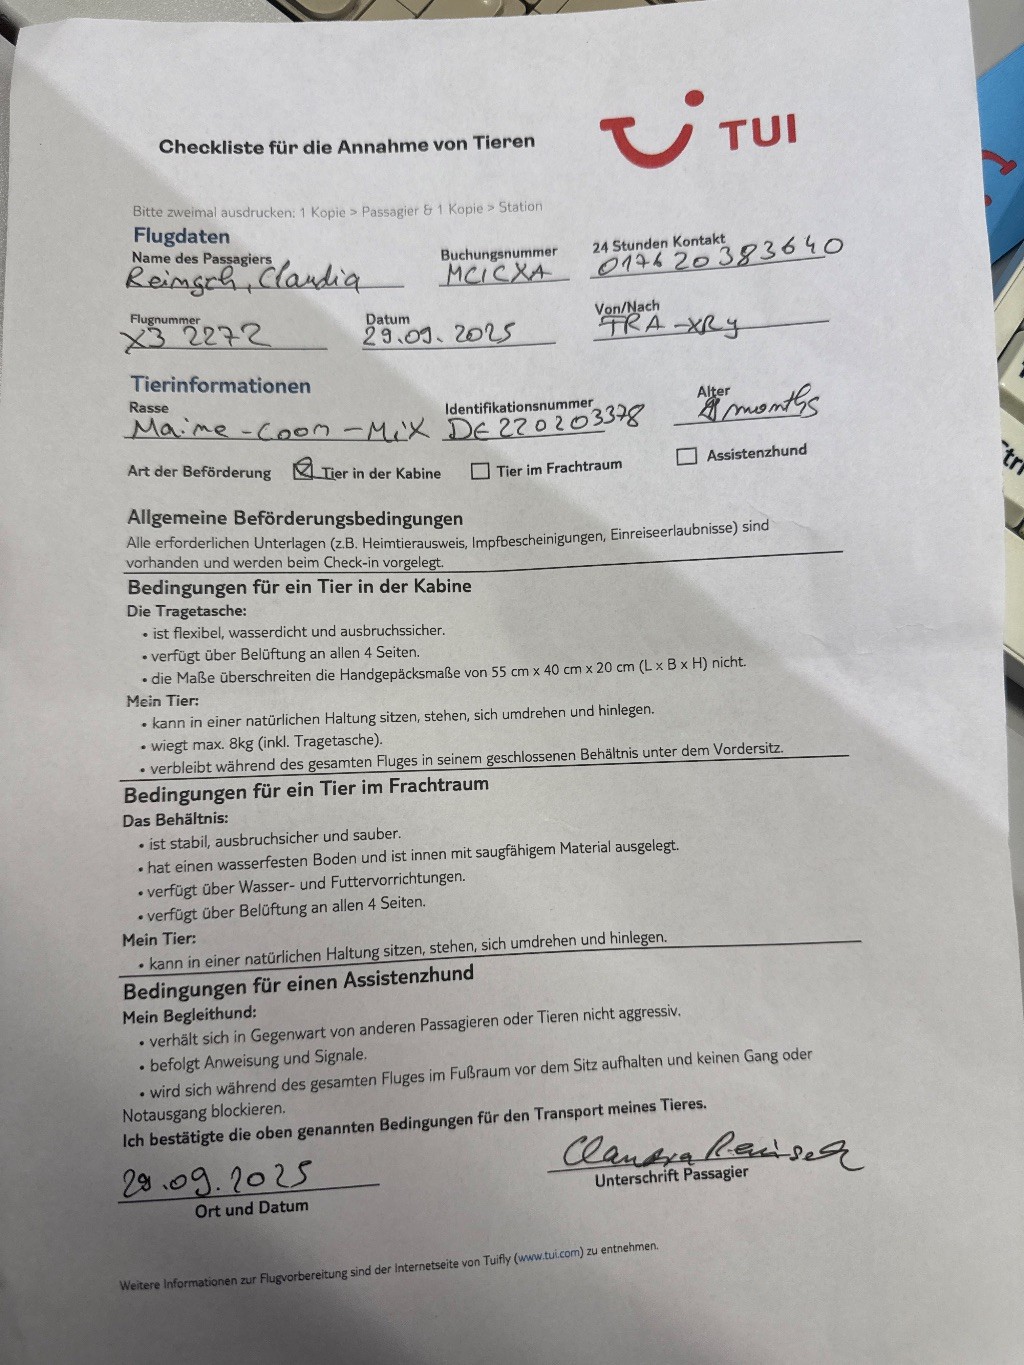 TUI
Checkliste für die Annahme von Tieren
Bitte zweimal ausdrucken: 1 Kopie > Passagier & 1 Kopie > Station
Flugdaten
Name des Passagiers Buchungsnummer 24 Stunden Kontakt
Reinsch, Claudia MCICXA 0176 20383640
Flugnummer Datum Von/Nach
X3 2272 29.09.2025 FRA - XRY
Tierinformationen
Rasse Identifikationsnummer Alter
Maine-Coon-Mix DE 220203378 months
Art der Beförderung Tier in der Kabine Tier im Frachtraum Assistenzhund
Allgemeine Beförderungsbedingungen
Alle erforderlichen Unterlagen (z.B. Heimtierausweis, Impfbescheinigungen, Einreiseerlaubnisse) sind
vorhanden und werden beim Check-in vorgelegt.
Bedingungen für ein Tier in der Kabine
Die Tragetasche:
• ist flexibel, wasserdicht und ausbruchssicher.
• verfügt über Belüftung an allen 4 Seiten.
• die Maße überschreiten die Handgepäcksmaße von 55 cm x 40 cm x 20 cm (L x B x H) nicht.
Mein Tier:
• kann in einer natürlichen Haltung sitzen, stehen, sich umdrehen und hinlegen.
• wiegt max. 8kg (inkl. Tragetasche).
• verbleibt während des gesamten Fluges in seinem geschlossenen Behältnis unter dem Vordersitz.
Bedingungen für ein Tier im Frachtraum
Das Behältnis:
• ist stabil, ausbruchsicher und sauber.
• hat einen wasserfesten Boden und ist innen mit saugfähigem Material ausgelegt.
• verfügt über Wasser- und Futtervorrichtungen.
• verfügt über Belüftung an allen 4 Seiten.
Mein Tier:
• kann in einer natürlichen Haltung sitzen, stehen, sich umdrehen und hinlegen.
Bedingungen für einen Assistenzhund
Mein Begleithund:
• verhält sich in Gegenwart von anderen Passagieren oder Tieren nicht aggressiv.
• befolgt Anweisung und Signale.
• wird sich während des gesamten Fluges im Fußraum vor dem Sitz aufhalten und keinen Gang oder
Notausgang blockieren.
Ich bestätigte die oben genannten Bedingungen für den Transport meines Tieres.
29.09.2025 Claudia Reinsch
Ort und Datum Unterschrift Passagier
Weitere Informationen zur Flugvorbereitung sind der Internetseite von Tuifly (www.tui.com) zu entnehmen.